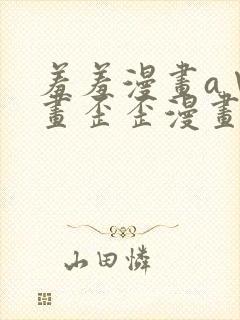 羞羞漫畫a
畫歪歪漫畫
山田憐